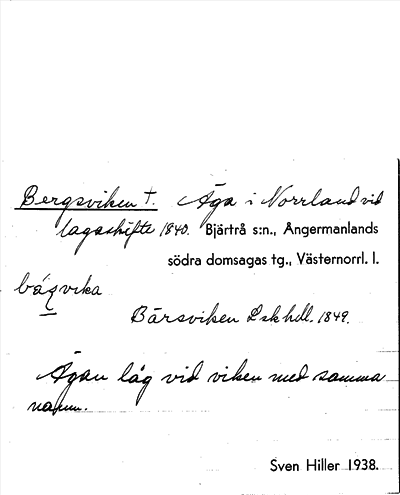 Bergsviken t. Äga i Norrland vid
lagaskifte 1840. Bjärtrå s:n., Ångermanlands
södra domsagas tg., Västernorrl. l.
Bärsviken Lskhdl. 1849.
Ägan låg vid viken med samma
namn.
Sven Hiller 1938.